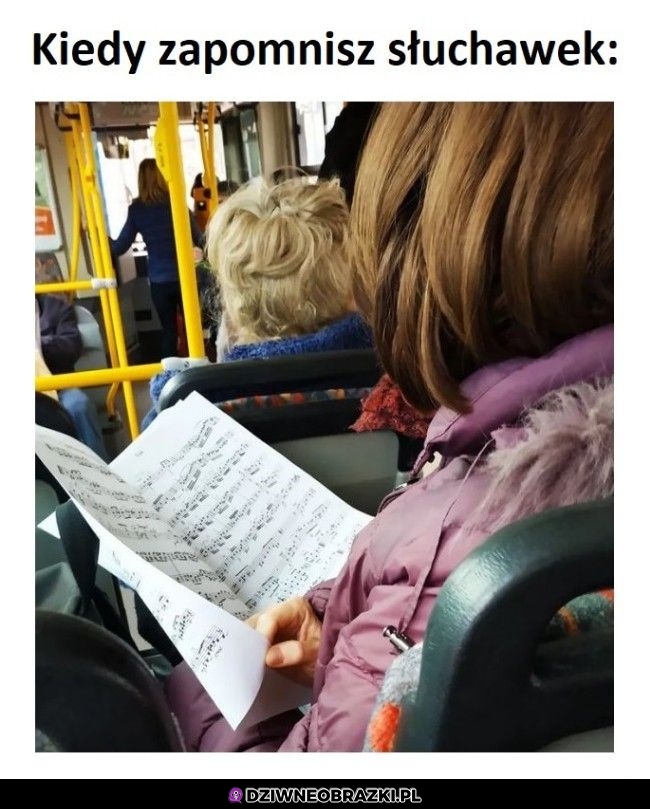 Kiedy zapomnisz słuchawek:
DZIWNEOBRAZKI.PL